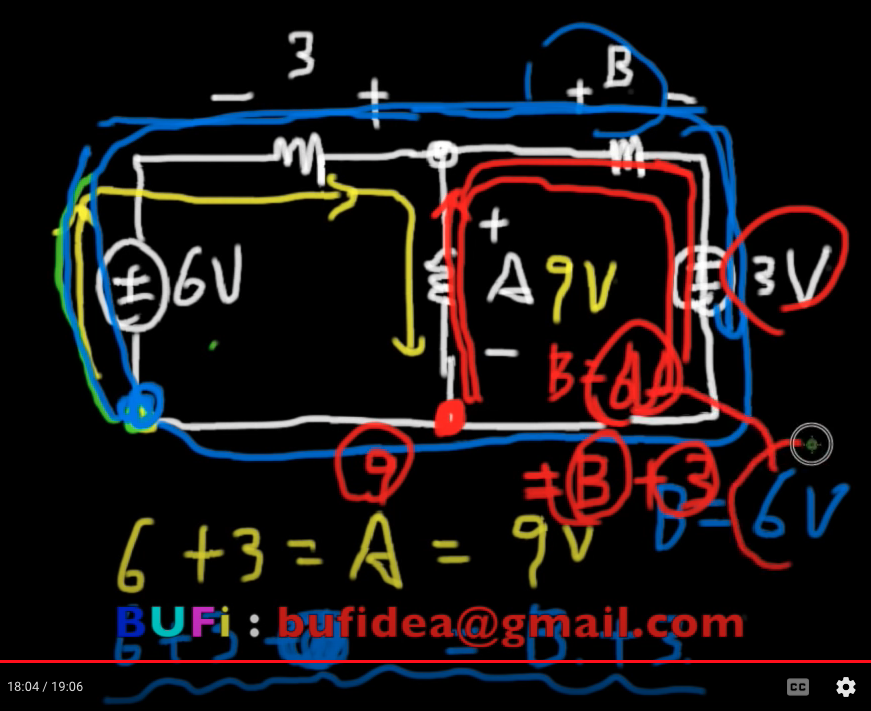 3 B
- + + -
+
6V A 9V 3V
-
B = 6V
9 = B + 3 B = 6V
6 + 3 = A = 9V
BUFi : bufidea@gmail.com
6 + 3 = B + 3
18:04 / 19:06 CC